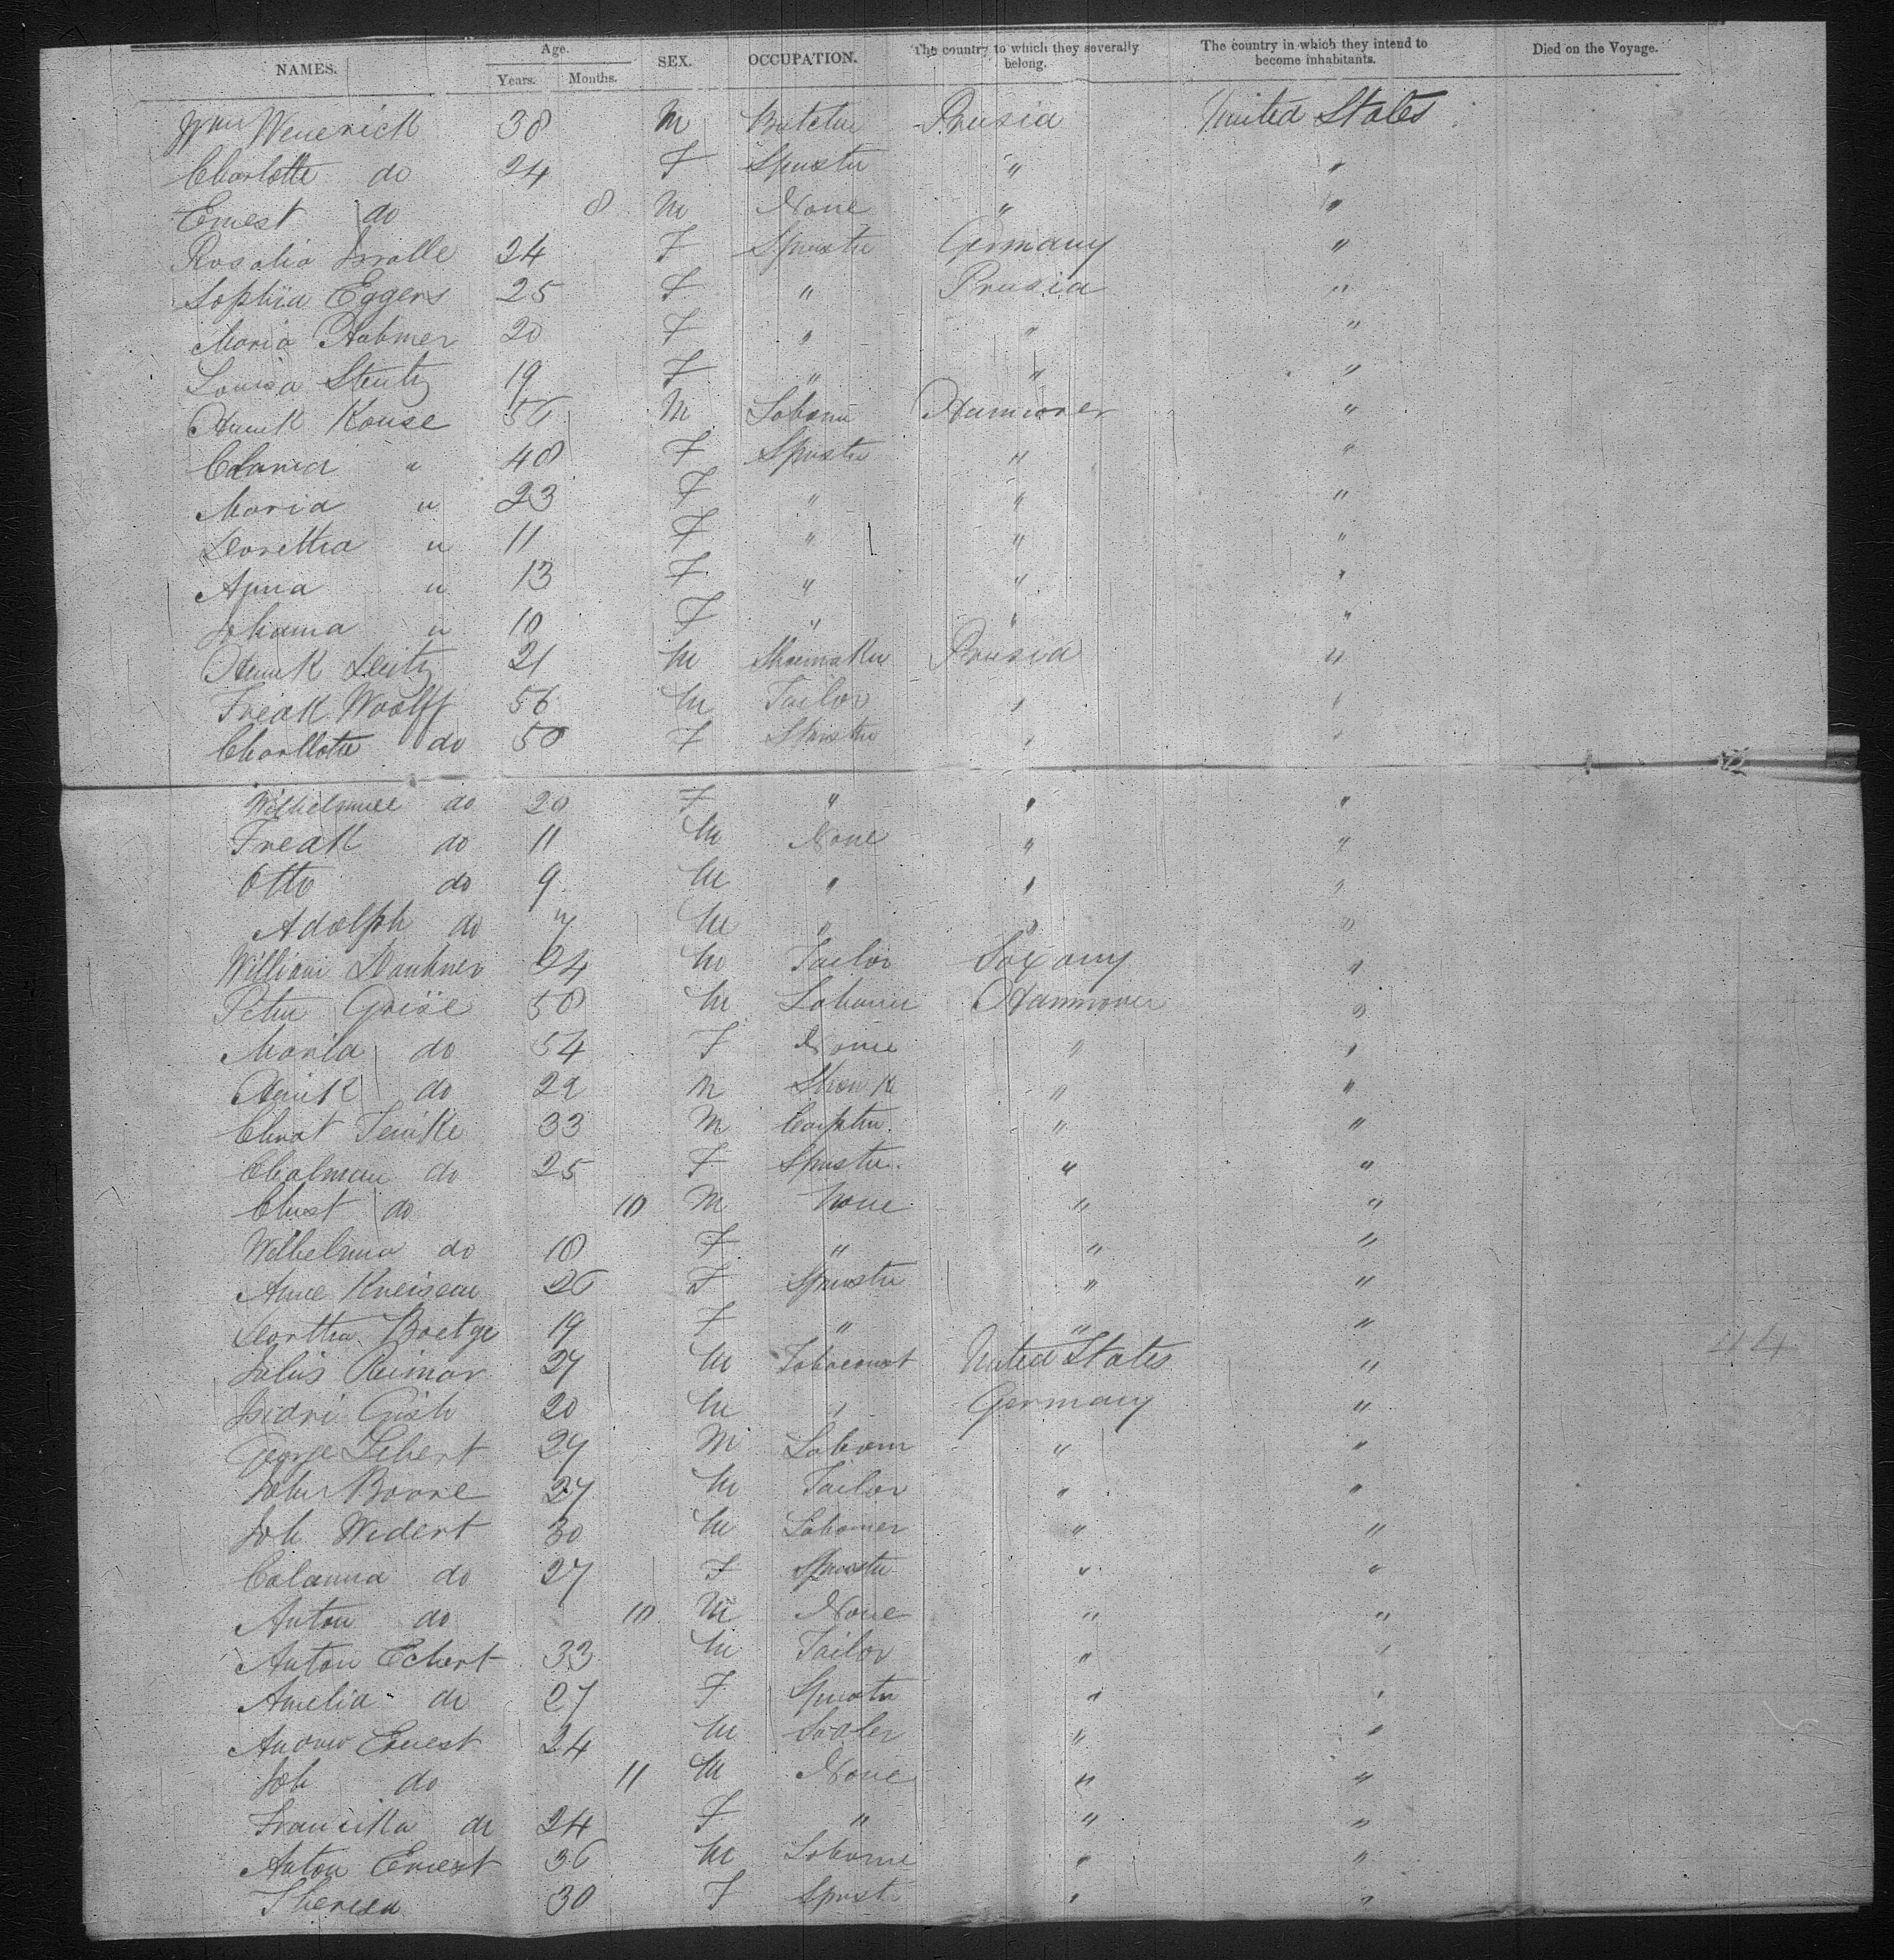 NAMES. Age. Years. Months. SEX. OCCUPATION. The country to which they severally belong. The country in which they intend to become inhabitants. Died on the Voyage.
Wm Wenerick 38 M Butcher Prusia United States
Charlotte do 24 F Spinster " "
Ernest do 8 M None " "
Rosalia 24 F Spinster Germany "
Sophia Eggers 25 F " Prusia "
Maria Habmer 20 F " " "
Louisa Stentz 19 F " " "
Henrik Kouse 56 M Laborer Hannover "
" 48 F Spinster " "
Maria " 23 F " " "
Dorethia " 11 F " " "
Anna " 13 F " " "
Johanna " 10 F " " "
Henrik Deitz 21 M Shoemaker Prusia "
Fredk Woolff 56 M Tailor " "
Charllotte do 50 F Spinster " "
Wilhelmine do 20 F " " "
Fredk do 11 M None " "
Otto do 9 M " " "
Adolph do 7 M " " "
William Dankner 24 M Tailor Saxony "
Peter Grise 58 M Laborer Hannover "
Maria do 54 F None " "
Henrik do 22 M Shoemk " "
Christ Teinke 33 M Carpter " "
do 25 F Spinster " "
Christ do 10 M None " "
Wilhelmina do 18 F " " "
Anne Kneisean 26 F Spinster " "
Dorthea Boetge 19 F " " "
Julius Reimar 27 M Tobaconist United States "
Isidri Gish 20 M " Germany "
George Lebert 27 M Laborer " "
John Boone 27 M Tailor " "
Joh Widert 30 M Laborer " "
Calanna do 27 F Spinster " "
Anton do 10 M None " "
Anton Echert 33 M Tailor " "
Amelia do 27 F Spinster " "
Andrew Ernest 24 M Sadler " "
Joh do 11 M None " "
Franciska do 24 F " " "
Anton Ernest 36 M Laborer " "
Theresa 30 F Spinst " "
44